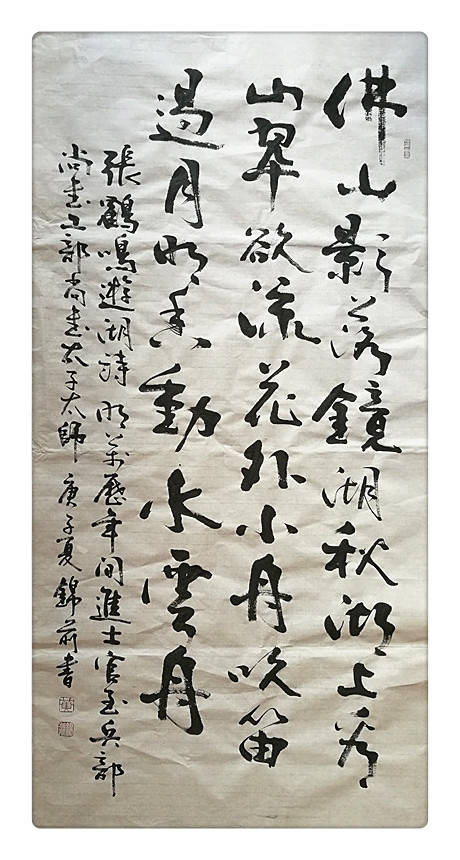 佛山影落鏡湖秋湖上看
山翠欲流花外小舟吹笛
過月明香動水雲舟
張鶴鳴遊湖詩 明萬歷年間進士官至兵部
尚書工部尚書太子太師 庚子夏錦前書